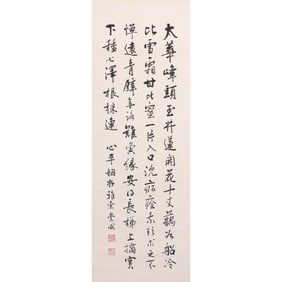 太華峰頭玉井蓮開花十丈藕如船冷
比雪霜甘比蜜一片入口沈痾痊我欲求之不
憚遠青壁無路難夤緣安得長梯上摘實
下種七澤根株連 心平姻